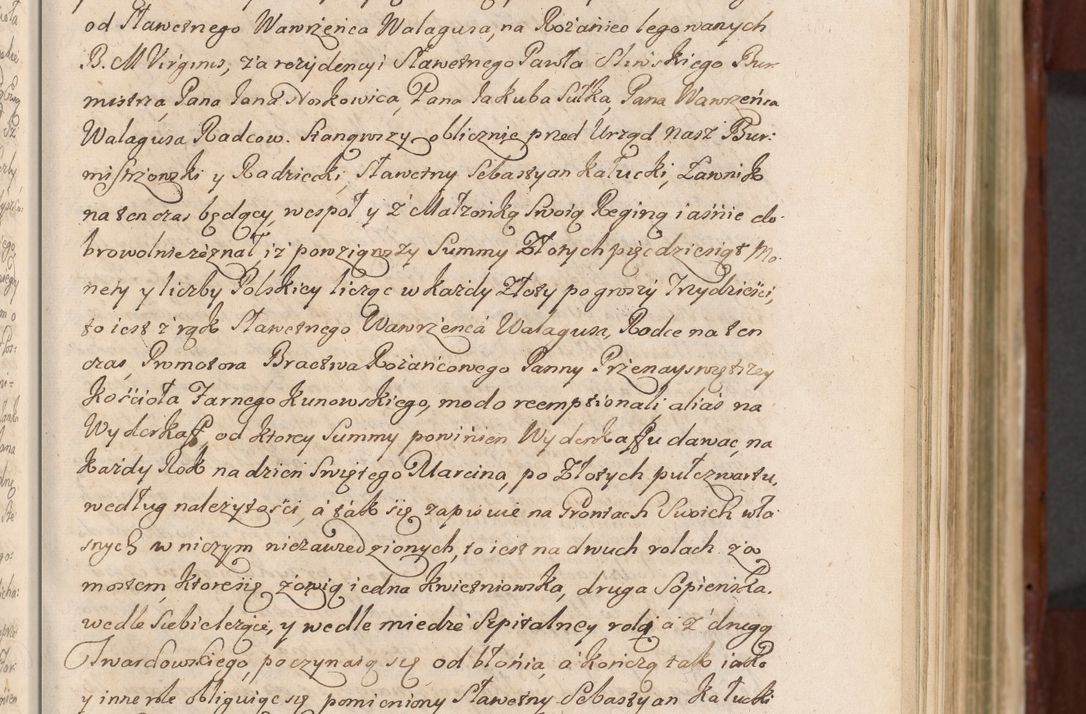 od Sławetnego Wawrzenca Walagusa, na Rożaniec legowanych
B. M Virginis, za rezydencyi Sławetnego Pawła Sliwskiego Bur-
mistrza Pana Jana Noskowica, Pana Jakuba Sułka, Pana Wawrzeńca
Walagusa Radcow. Stanąwszy oblicznie przed Urząd nasz Bur:
mistrzowski y Radziecki, Sławetny Sebastyan Kałucki, Ławnik
na ten czas będący, wespoł y z Małżonką Swoią Reginą iaśnie do-
browolnie zeznał iż powziąwszy Summy Złotych pięcdziesiąt Mo-
nety y liczby Polskiey licząc w każdy Złoty po groszy Trzydzieści,
to iest z rąk Sławetnego Wawrzencá Walagusa, Radce na ten
czas, Promotora Bractwa Rożańcowego Panny Przenayswiętszey
Kościoła Farnego Kunowskiego, modo reemptionali aliàs na
Wyderkaff, od ktorey Summy powinien Wyderkaffu dawac, na
każdy Rok na dzien Swiętego Marcina, po Złotych pułczwartu,
według należytości, á ták się zapisuie na Grontach Swoich wła-
snych w niczym niezawiedzionych, to iest na dwuch rolach za
mostem, ktore się zowią iedna Kwietniowska, druga Sopienska.
wedle Siebie leżące, y wedle miedze Szpitalney rolą a z drugą
Twardowskiego, poczynaią się od błonia, á kończą tak iako
y inne role obliguiąc się pomieniony Sławetny Sebastyan Kałucki